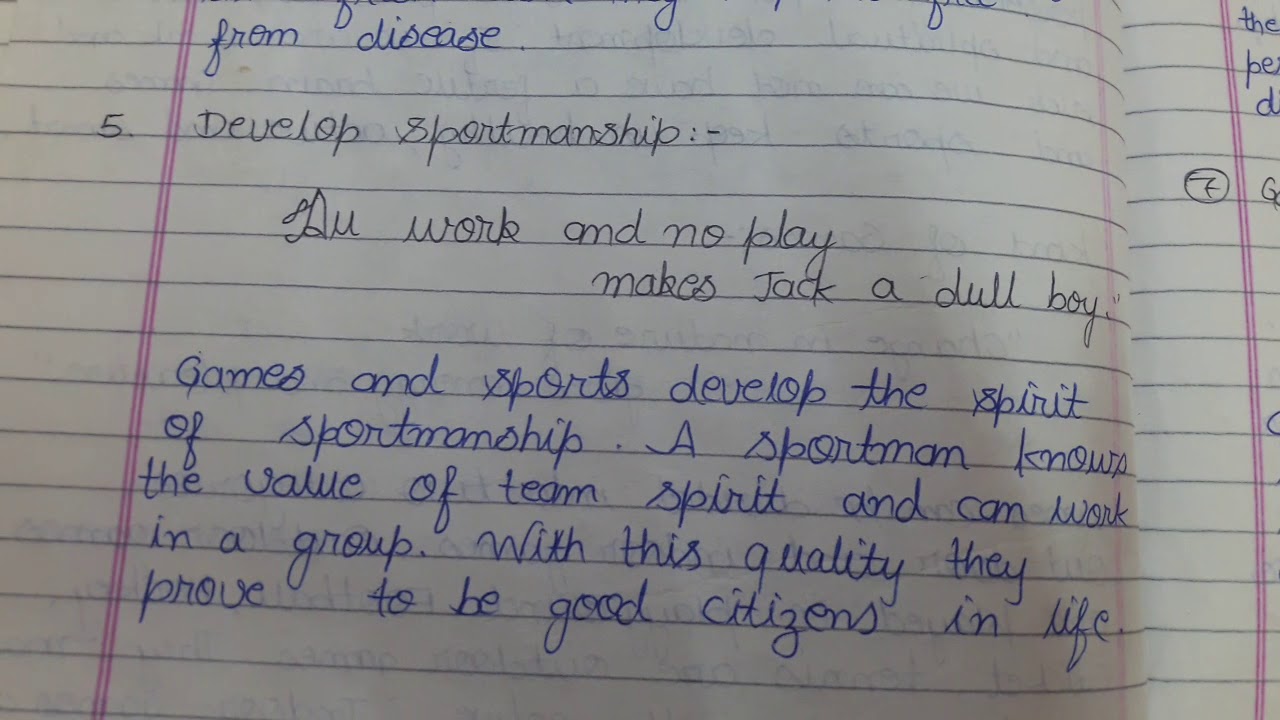 from disease.
5. Develop sportmanship:-
"All work and no play
makes Jack a dull boy."
Games and sports develop the spirit
of sportmanship. A sportman knows
the value of team spirit and can work
in a group. With this quality they
prove to be good citizens in life.
the
7